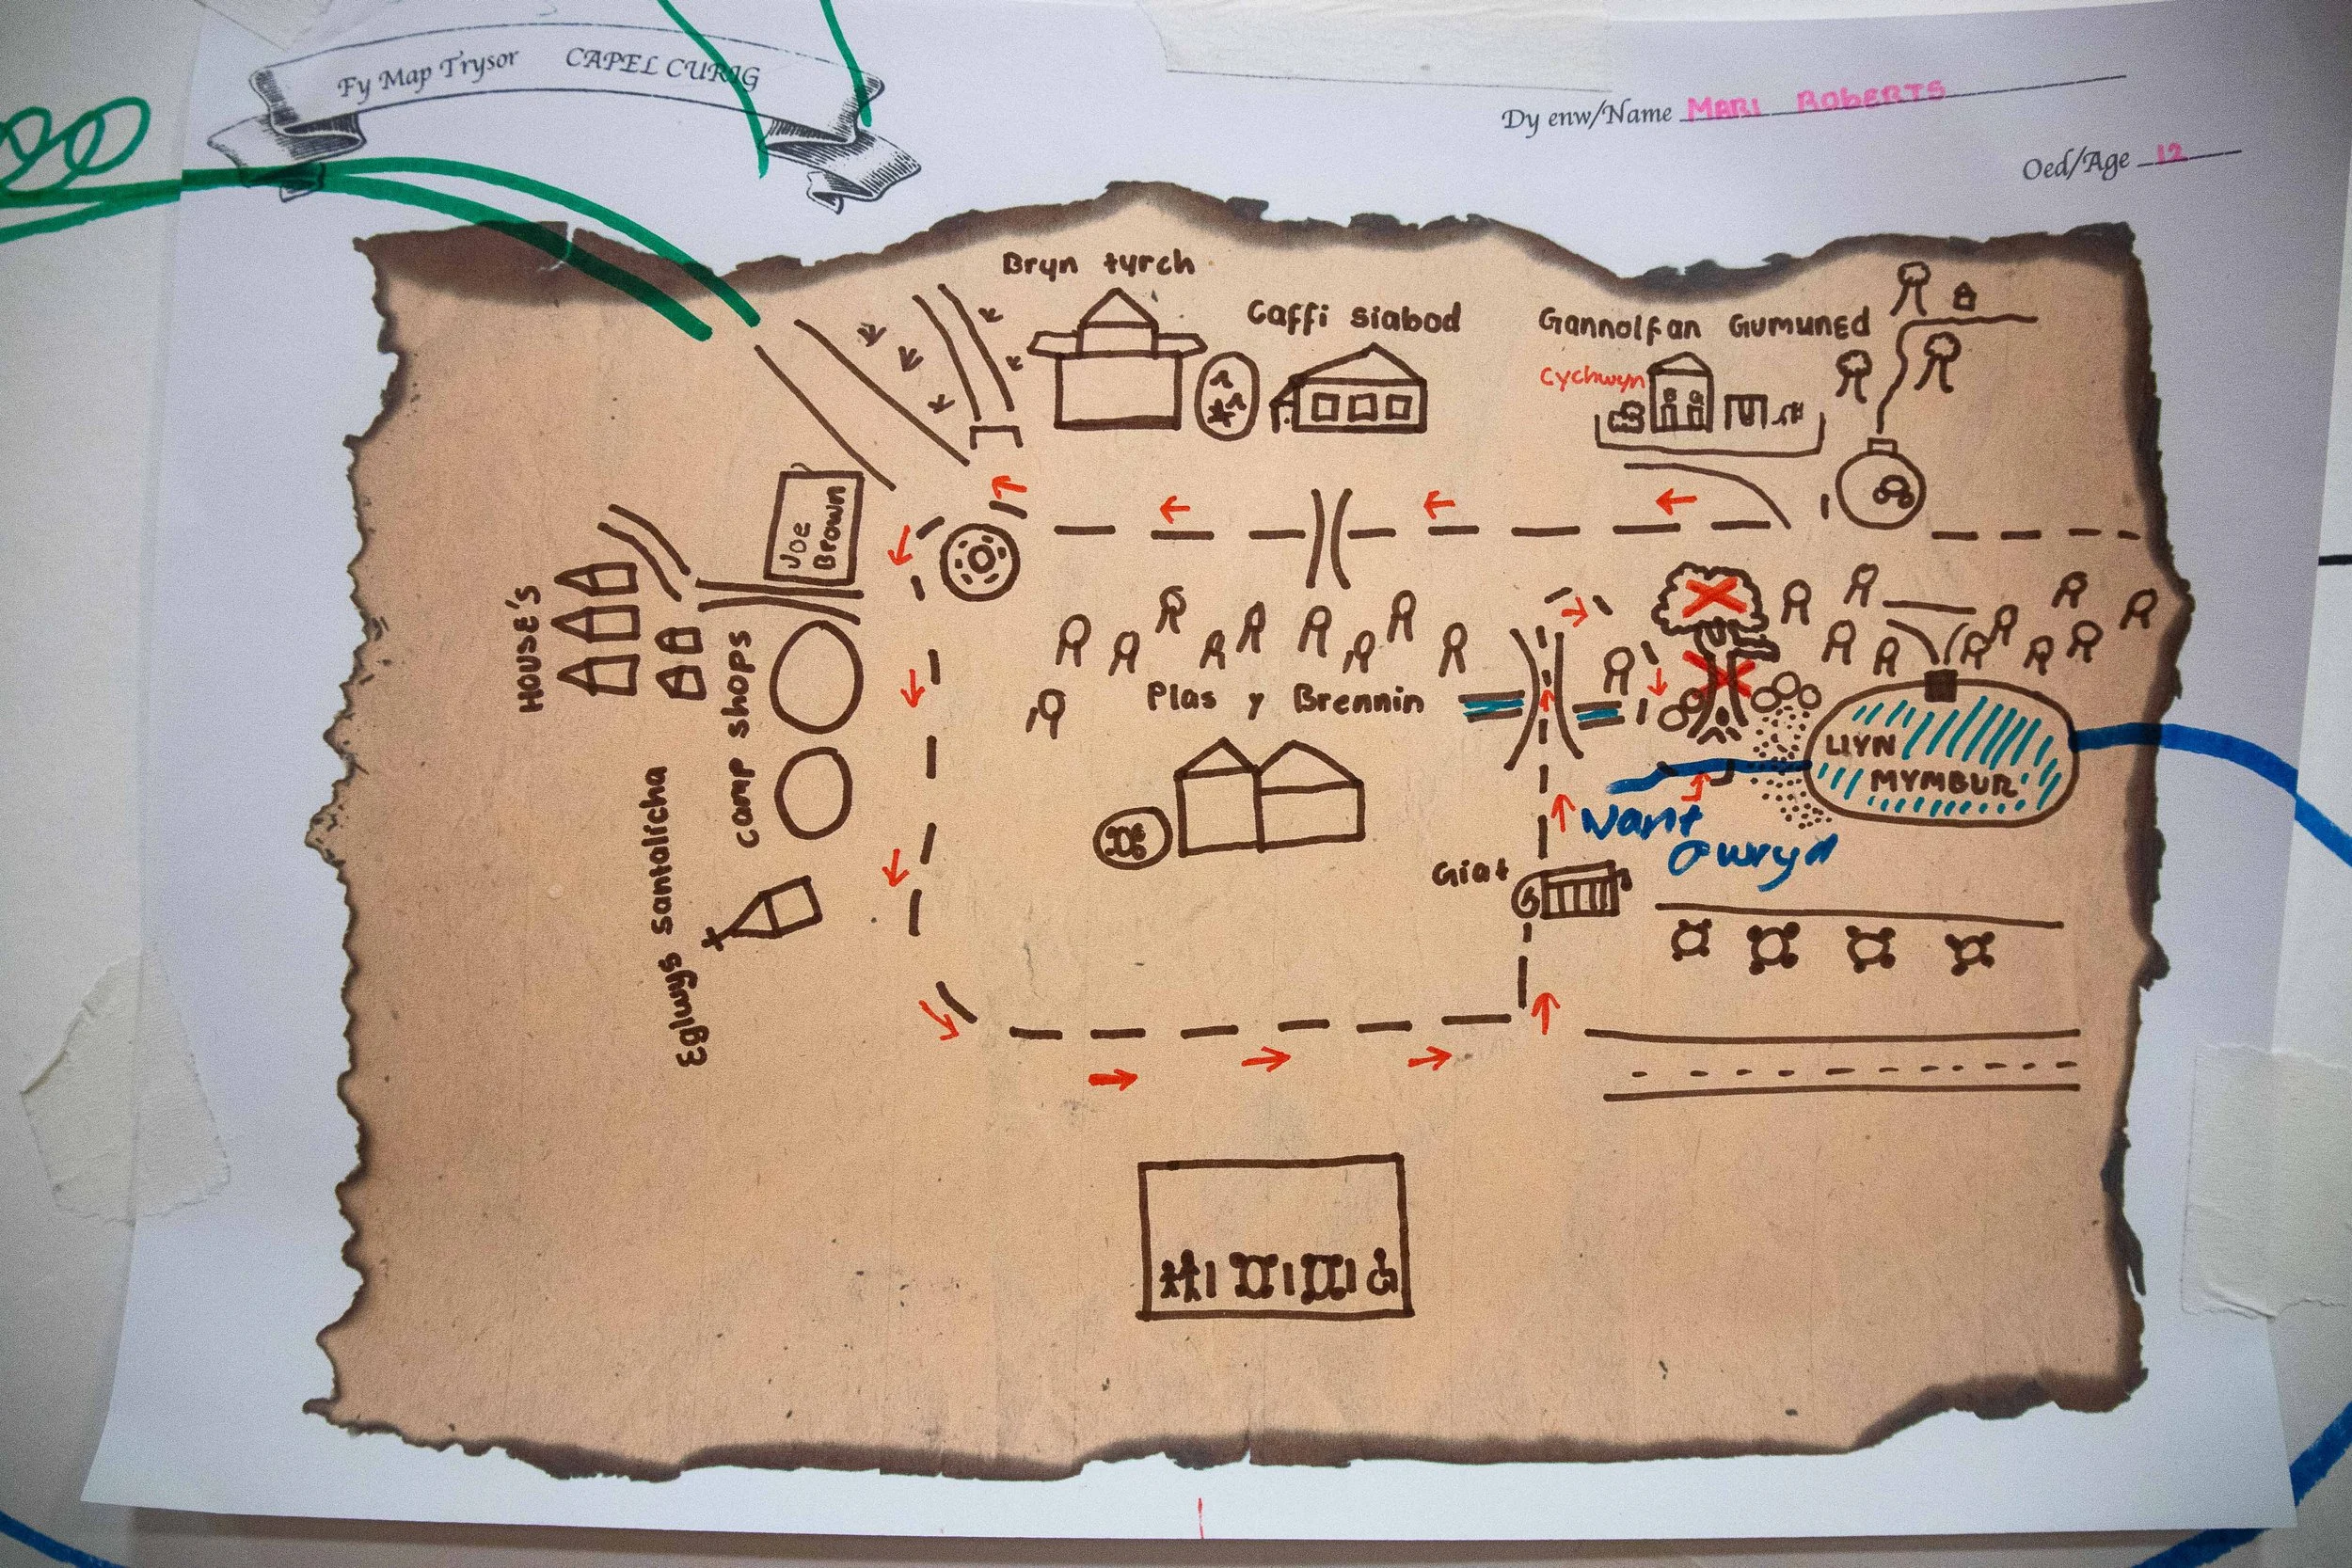 Fy Map Trysor CAPEL CURIG
Dy enw/Name MARI ROBERTS
Oed/Age 12
Bryn tyrch
Caffi Siabod
Gannolfan Gumuned
Cychwyn
Joe
Brown
HOUSE'S
camp shops
Plas y Brennin
LLYN
MYMBUR
Nant
Gwryd
Giat
Eglwys Santalicha